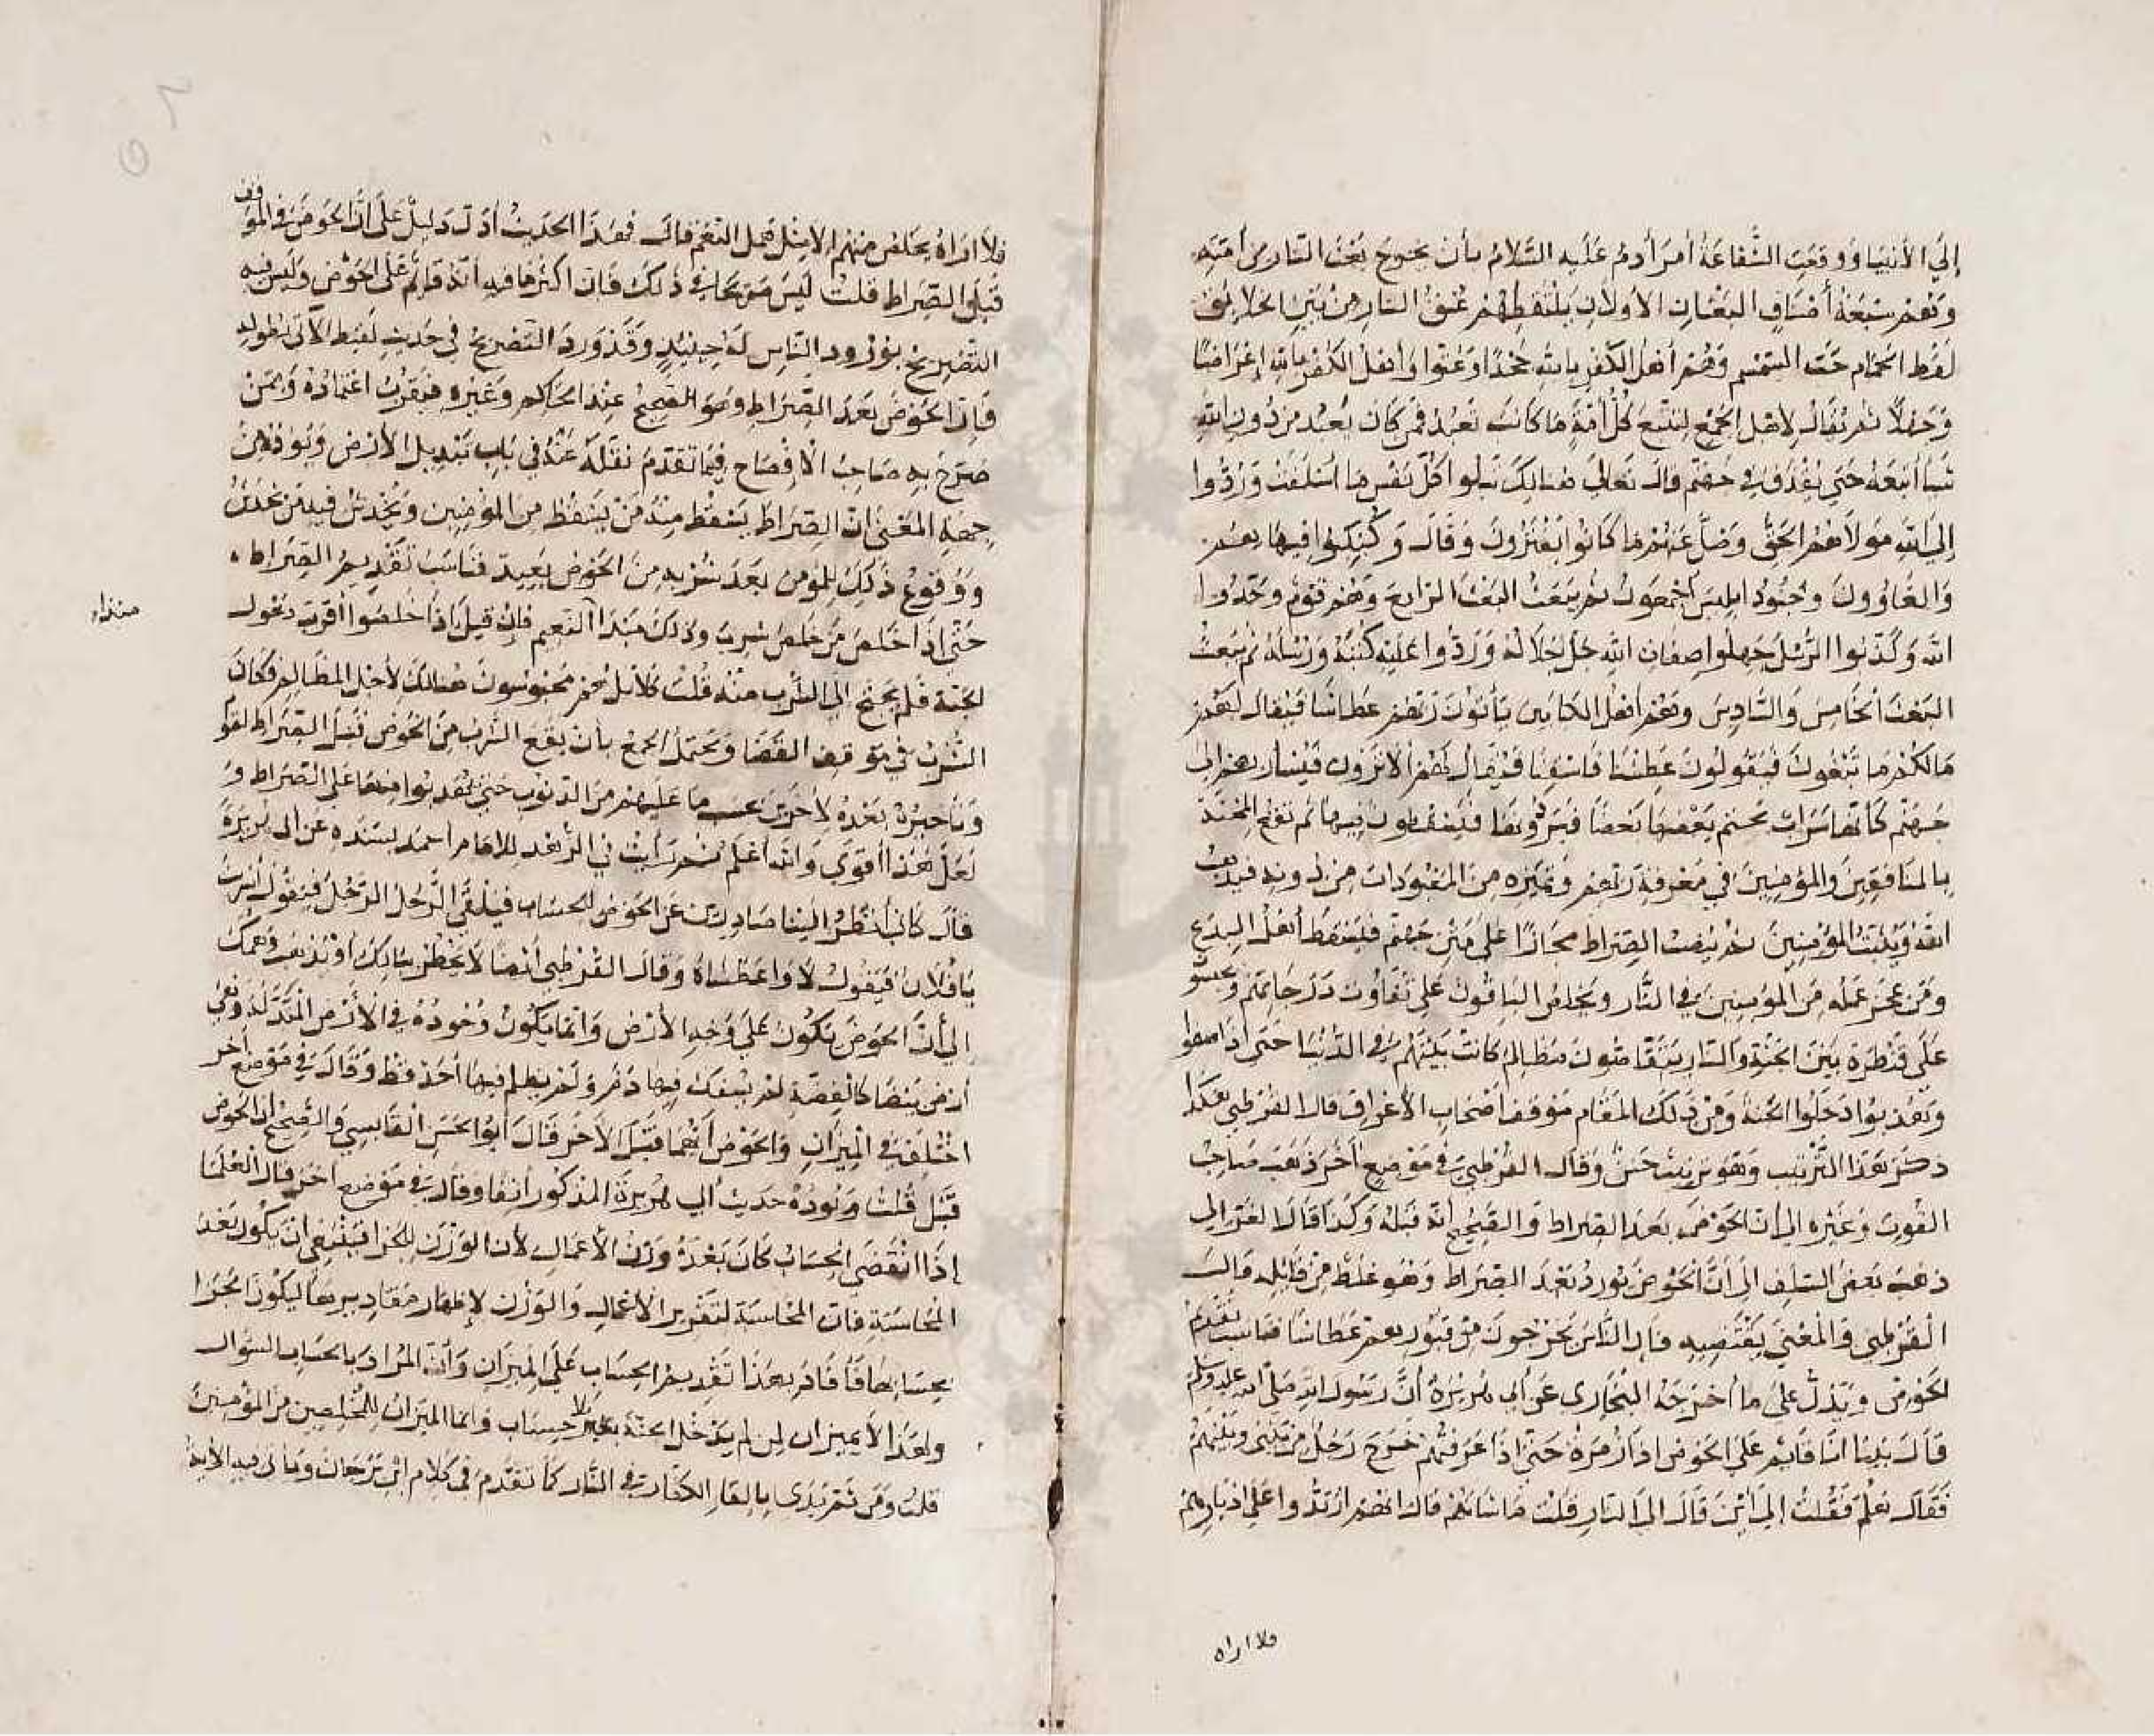 إلى الأنبياء ووقعت الشفاعة أمر أدم عليه السلام بأن يخرج بعث النار من أمته
وهم سبعة أصناف البعثان الأولان يلتقطهم عنق النار من بين الخلائق
لقط الحمام حب السمسم وهم أهل الكفر بالله جحدا وعتوا وأهل الكفر بالله إعراضا
وجهلا ثم يقال لأهل الجمع لتتبع كل أمة ما كانت تعبد فمن كان يعبد من دون الله
شيأ اتبعه حتى يقذف في جهنم قال تعالى هنالك تبلوا كل نفس ما أسلفت وردوا
إلى الله مولاهم الحق وضل عنهم ما كانوا يفترون وقال وكبكبوا فيها هم
والغاوون وجنود ابليس أجمعون ثم يبعث البعث الرابع وهم قوم وحدوا
الله وكذبوا الرسل جهلوا صفات الله جل جلاله وردوا عليه كتبه ورسله ثم يبعث
البعث الخامس والسادس وهم أهل الكتابين يأتون ربهم عطاشا فيقال لهم
مالكم ما تبغون فيقولون عطشنا فاسقنا فيقال لهم ألا ترون فيشار بهم إلى
جهنم كأنها سراب يحطم بعضها بعضا فيردونها فيسقطون فيها ثم تقع المحنة
بالمنافقين والمؤمنين في معرفة ربهم وتميزه من المعبودات من دونه فيذهب
الله ويثبت المؤمنين ثم ينصب الصراط مجازا على متن جهنم فيسقط أهل البدع
ومن عجز عمله من المؤمنين في النار ويخلص الباقون على تفاوت درجاتهم ويحبسوا
على قنطرة بين الجنة والنار يتقاصون مظالم كانت بينهم في الدنيا حتى إذا صفوا
وهذبوا دخلوا الجنة ومن ذلك المقام موقف أصحاب الأعراف قال القرطبي هكذا
ذكر هذا الترتيب وهو ترتيب حسن وقال القرطبي في موضع أخر ذهب صاحب
القوت وغيره إلى أن الحوض بعد الصراط والصحيح أنه قبله وكذا قال الغزالي
ذهب بعض السلف إلى أن الحوض يورد بعد الصراط وهو غلط من قائله قال
القرطبي والمعنى يقتضيه فإن الناس يخرجون من قبورهم عطاشا فناسب تقديم
الحوض ويدل على ما أخرجه البخاري عن أبي هريرة أن رسول الله صلى الله عليه وسلم
قال بينا أنا قائم على الحوض إذا زمرة حتى إذا عرفتهم خرج رجل من بيني وبينهم
فقال هلم فقلت إلى أين قال إلى النار قلت ما شأنهم قال انهم ارتدوا على ادبارهم
فلا اراه
فلا اراه يخلص منهم إلا مثل همل النعم قال فهذا الحديث أدل دليل على أن الحوض في الموقف
قبل الصراط قلت ليس هو كذلك فإن اكثر ما فيه أنه قائم على الحوض وليس فيه
التصريح بورود الناس له حينئذ وقد ورد التصريح في حديث لقيط الآتي بطوله
فإن الحوض بعد الصراط وهو الصحيح عند الحاكم وغيره فيقرب اعتماده وممن
صرح به صاحب الافصاح فيما تقدم نقله عنه في باب تبديل الأرض ويؤيده من
جهة المعنى أن الصراط يسقط منه من يسقط من المؤمنين ويخدش فيه من يخدش
ووقوع ذلك للمؤمن بعد شربه من الحوض بعيد فناسب تقديم الصراط
حتى إذا خلص من خلص شرب وذلك مبدأ النعيم فإن قيل إذا خلصوا أقرب دخول
الجنة فلم يحتج إلى الشرب منه قلت كلا بل هم محبوسون هنالك لأجل المظالم فكان
الشرب في موقف القضا ويحتمل الجمع بأن يقع الشرب من الحوض قبل الصراط لقوم
وتأخيره بعده لأخرين بحسب ما عليهم من الذنوب حتى يهذبوا منها على الصراط و
لعل هذا أقوى والله أعلم ثم رأيت في الزهد للإمام أحمد بسنده عن أبي هريرة
قال كأني أنظر إلينا صادرين عن الحوض للحساب فيلقى الرجل الرجل فيقول أشربت
يا فلان فيقول لا واعطشاه وقال القرطبي أيضا لا يخطر ببالك أو يذهب وهمك
إلى أن الحوض يكون على وجه الأرض وانما يكون وجوده في الأرض المبدلة وهي
ارض بيضا كالفضة لم يسفك فيها دم ولم يظلم فيها أحد قط وقال في موضع أخر
اختلف في الميزان والحوض أيهما قبل الأخر قال أبو الحسن القابسي والصحيح أن الحوض
قبل قلت ويؤيده حديث أبي هريرة المذكور أنفا وقال في موضع اخر قال العلما
إذا انقضى الحساب كان بعده وزن الأعمال لأن الوزن للجزا فينبغي أن يكون بعد
المحاسبة فإن المحاسبة لتقرير الأعمال والوزن لإظهار مقاديرها ليكون الجزا
بحسابها فأفاد بهذا تقديم الحساب على الميزان وأن المراد بالحساب السؤال
ولهذا لا ميزان لمن لم يدخل الجنة بغير حساب وانما الميزان للمخلصين من المؤمنين
قلت ومن ثم يبدى بإلقاء الكفار في النار كما تقدم في كلام ابن برجان ويأتي فيه الأبد